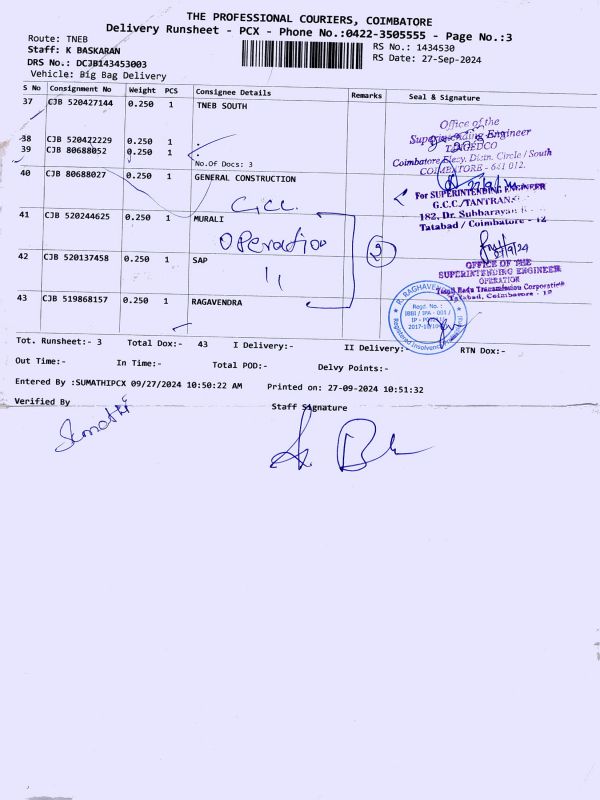 THE PROFESSIONAL COURIERS, COIMBATORE
Delivery Runsheet - PCX - Phone No.:0422-3505555 - Page No.:3
Route: TNEB
RS No.: 1434530
Staff: K BASKARAN
RS Date: 27-Sep-2024
DRS No.: DCJB143453003
Vehicle: Big Bag Delivery
S No Consignment No Weight PCS Consignee Details Remarks Seal & Signature
37 CJB 520427144 0.250 1 TNEB SOUTH
38 CJB 520422229 0.250 1
39 CJB 80688052 0.250 1
No.Of Docs: 3
Office of the
Superintending Engineer
TANGEDCO
Coimbatore Elecy. Distn. Circle / South
COIMBATORE - 641 012.
40 CJB 80688027 0.250 1 GENERAL CONSTRUCTION
Gcc
For SUPERINTENDING ENGINEER
G.C.C/TANTRANS
182, Dr. Subbarayan R
Tatabad / Coimbatore - 12
41 CJB 520244625 0.250 1 MURALI
Operation
2
42 CJB 520137458 0.250 1 SAP
11
OFFICE OF THE
SUPERINTENDING ENGINEER
OPERATION
Tamil Nadu Transmission Corporation
Tatabad, Coimbatore - 12
43 CJB 519868157 0.250 1 RAGAVENDRA
Regd. No. :
IBBI / IPA - 001 /
Tot. Runsheet:- 3 Total Dox:- 43 I Delivery:- II Delivery:- RTN Dox:-
Out Time:- In Time:- Total POD:- Delvy Points:-
Entered By :SUMATHIPCX 09/27/2024 10:50:22 AM Printed on: 27-09-2024 10:51:32
Verified By Staff Signature
Sumathi